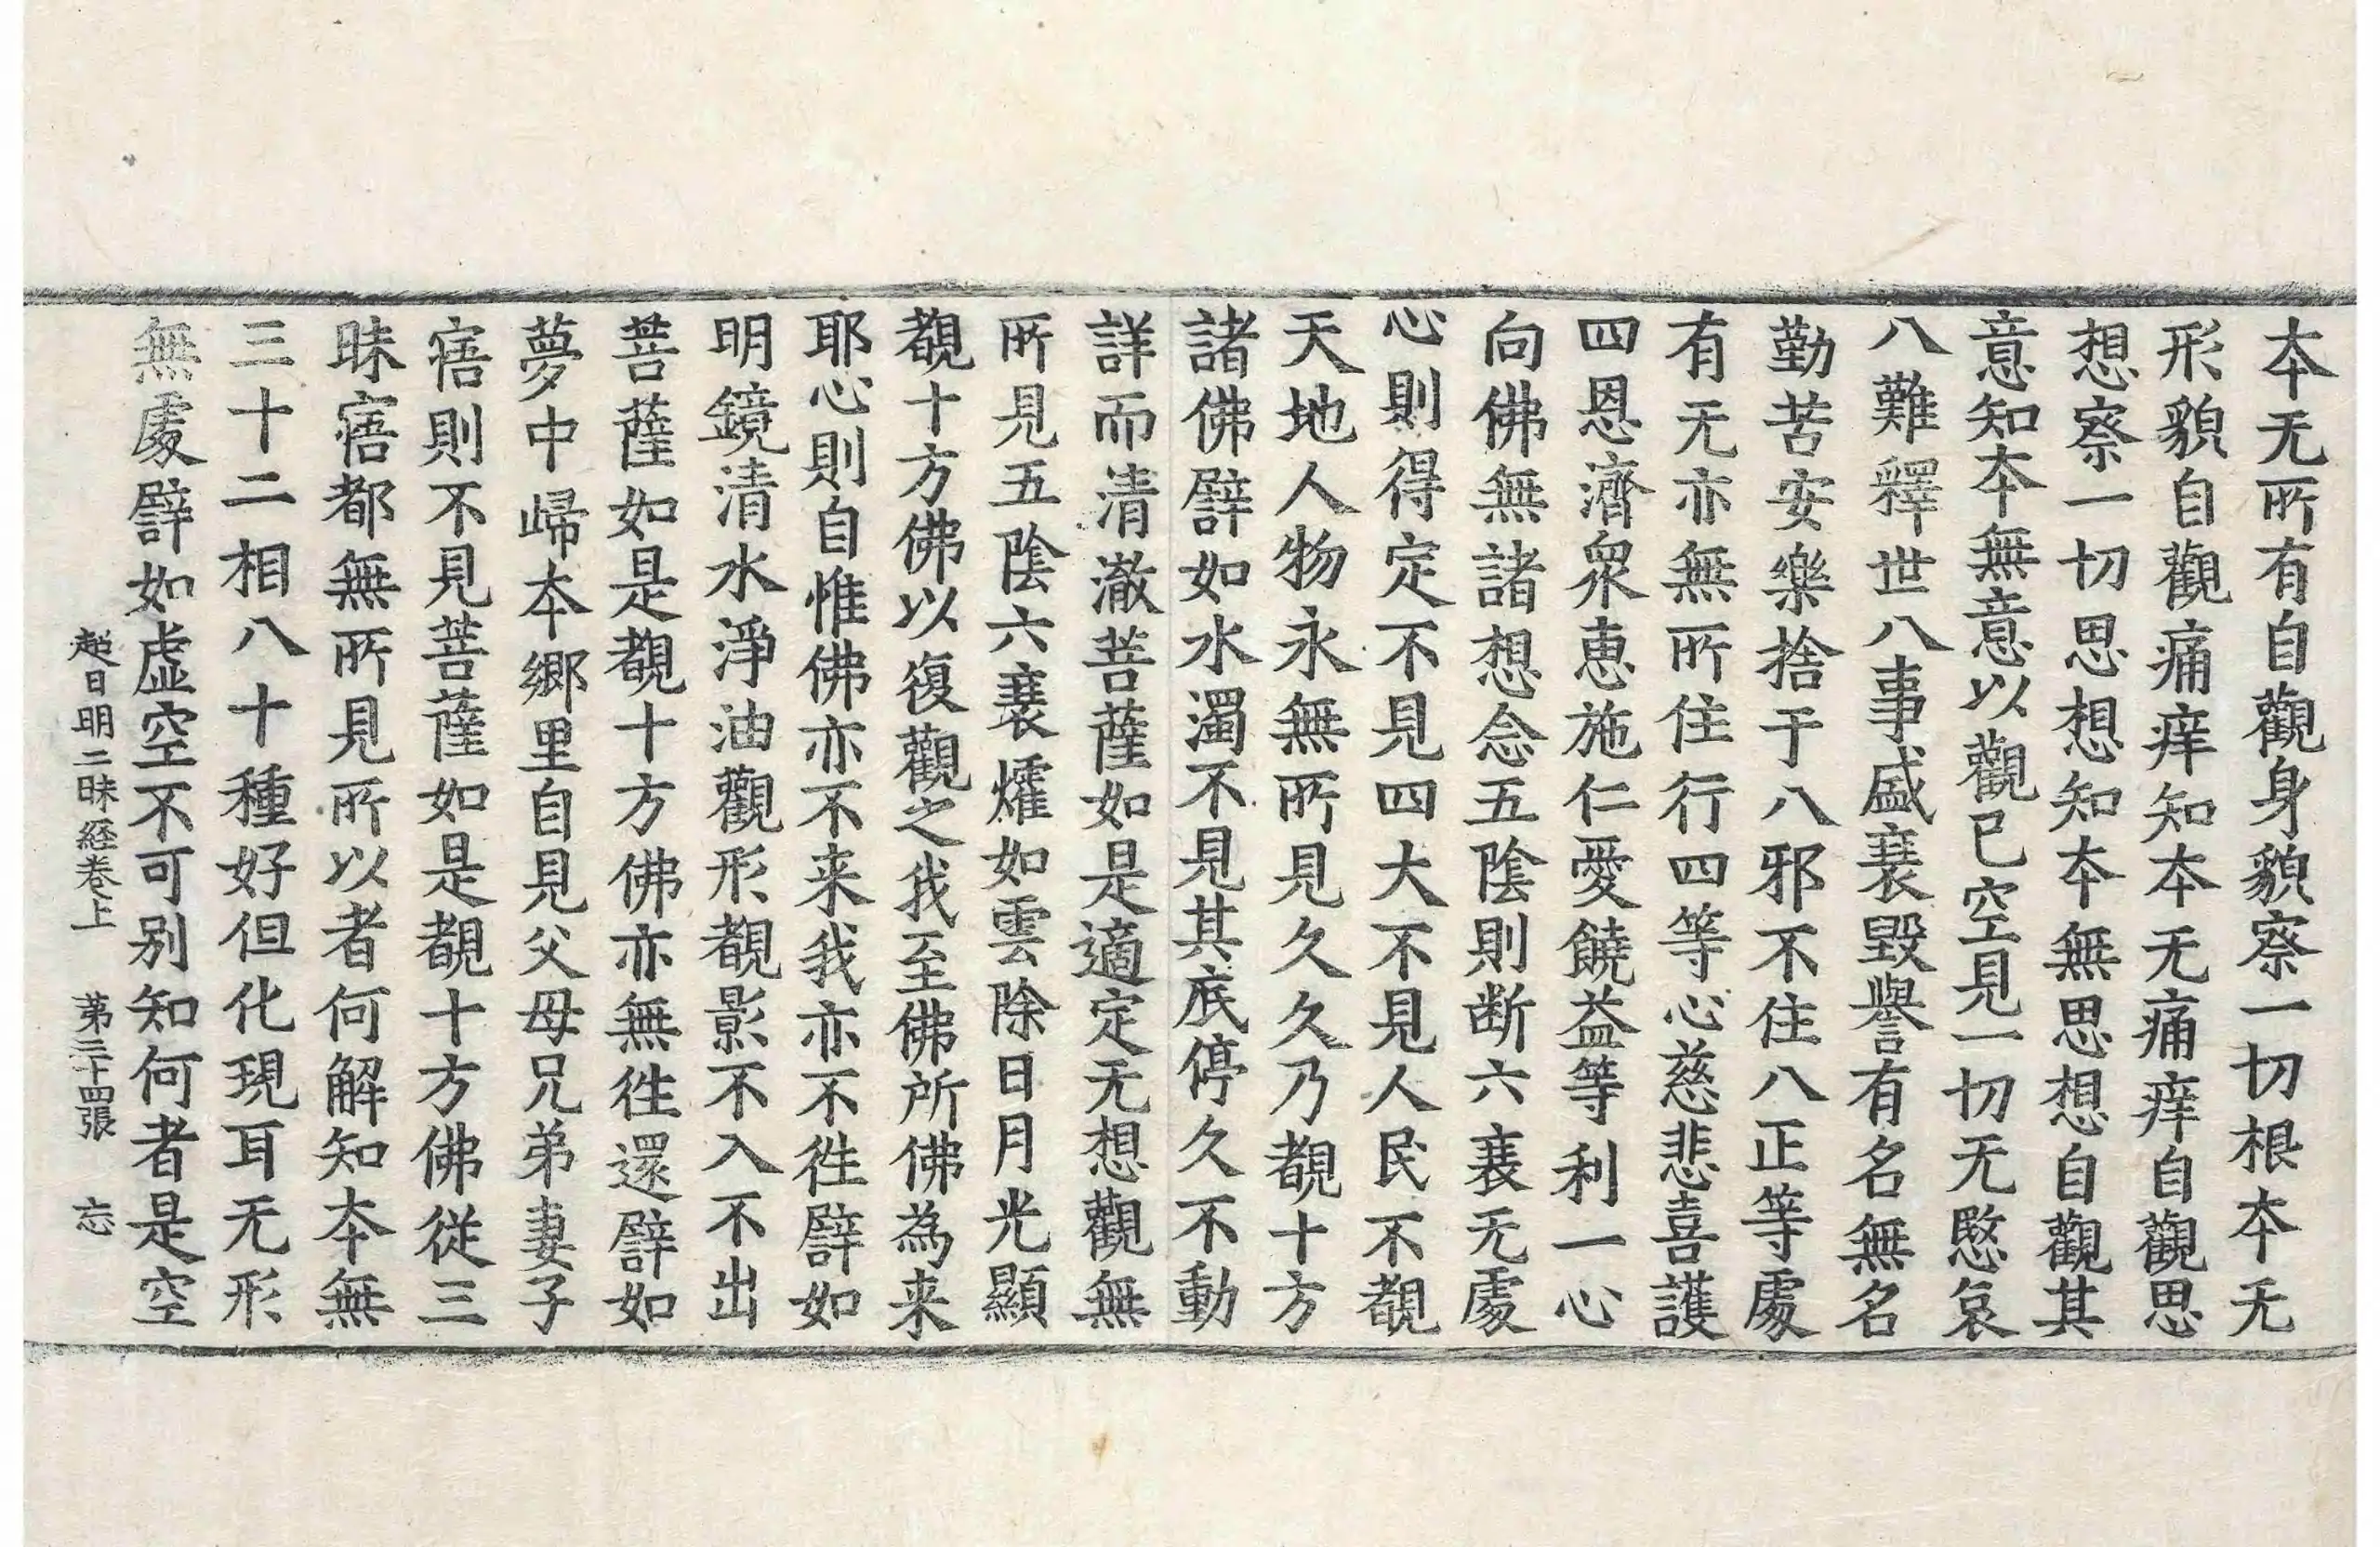 本无所有自觀身貌察一切根本无
形貌自觀痛痒知本无痛痒自觀思
想察一切思想知本無思想自觀其
意知本無意以觀已空見一切无慜哀
八難釋世八事盛衰毀譽有名無名
勤苦安樂捨于八邪不住八正等處
有无亦無所住行四等心慈悲喜護
四恩濟衆惠施仁愛饒益等利一心
向佛無諸想念五陰則断六衰无處
心則得定不見四大不見人民不覩
天地人物永無所見久久乃覩十方
諸佛譬如水濁不見其底停久不動
詳而清澈菩薩如是適定无想觀無
所見五陰六衰㸌如雲除日月光顯
覩十方佛以復觀之我至佛所佛為来
耶心則自惟佛亦不来我亦不徃譬如
明鏡清水淨油觀形覩影不入不出
菩薩如是覩十方佛亦無徃還譬如
夢中歸本鄉里自見父母兄弟妻子
寤則不見菩薩如是覩十方佛從三
昧寤都無所見所以者何解知本無
三十二相八十種好但化現耳无形
無處譬如虛空不可别知何者是空
超日明三昧経卷上 第二十四張 忘